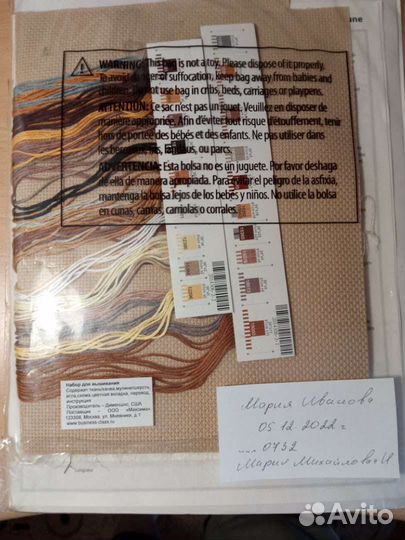 une
WARNING: This bag is not a toy. Please dispose of it properly.
To avoid danger of suffocation, keep bag away from babies and
children. Do not use bag in cribs, beds, carriages or playpens.
ATTENTION: Ce sac n'est pas un jouet. Veuillez en disposer de
manière appropriée. Afin d'éviter tout risque d'étouffement, tenir
hors de portée des bébés et des enfants. Ne pas utiliser dans
les berceaux, lits, landaus, ou parcs.
ADVERTENCIA: Esta bolsa no es un juguete. Por favor deshaga
de ella de manera apropiada. Para evitar el peligro de la asfixia,
mantenga la bolsa lejos de los bebés y niños. No utilice la bolsa
en cunas, camas, carriolas o corrales.
Набор для вышивания
Содержит: ткань/канва, мулине/шерсть,
игла, схема, цветная вкладка, перевод,
инструкция
Производитель - Дименшнс, США
Поставщик - ООО «Максима»
123308, Москва, ул. Мневники, д.1
www.business-class.ru
Мария Иванова
05.12.2022 г
.... 0732
Мария Михайловна И
Avito